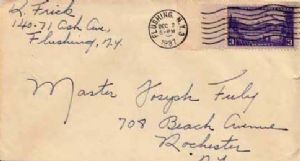 L. Frick
140-71 Ash Ave,
Flushing, N.Y.
FLUSHING, N.Y.
DEC 7
6-PM
1937
3
Master Joseph
708 Beach Avenue
Rochester
N.Y.